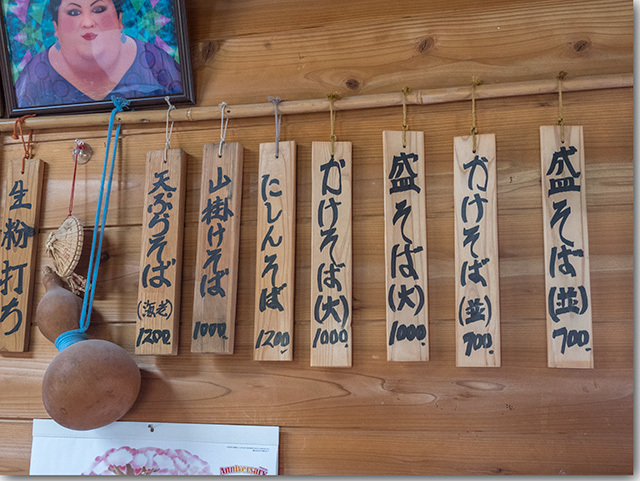 盛そば(並)
700.
かけそば(並)
700.
盛そば(大)
1000
かけそば(大)
1000
にしんそば
1200.
山掛けそば
1000.
天ぷらそば
(海老)
1200.
生粉打ち
Anniversary